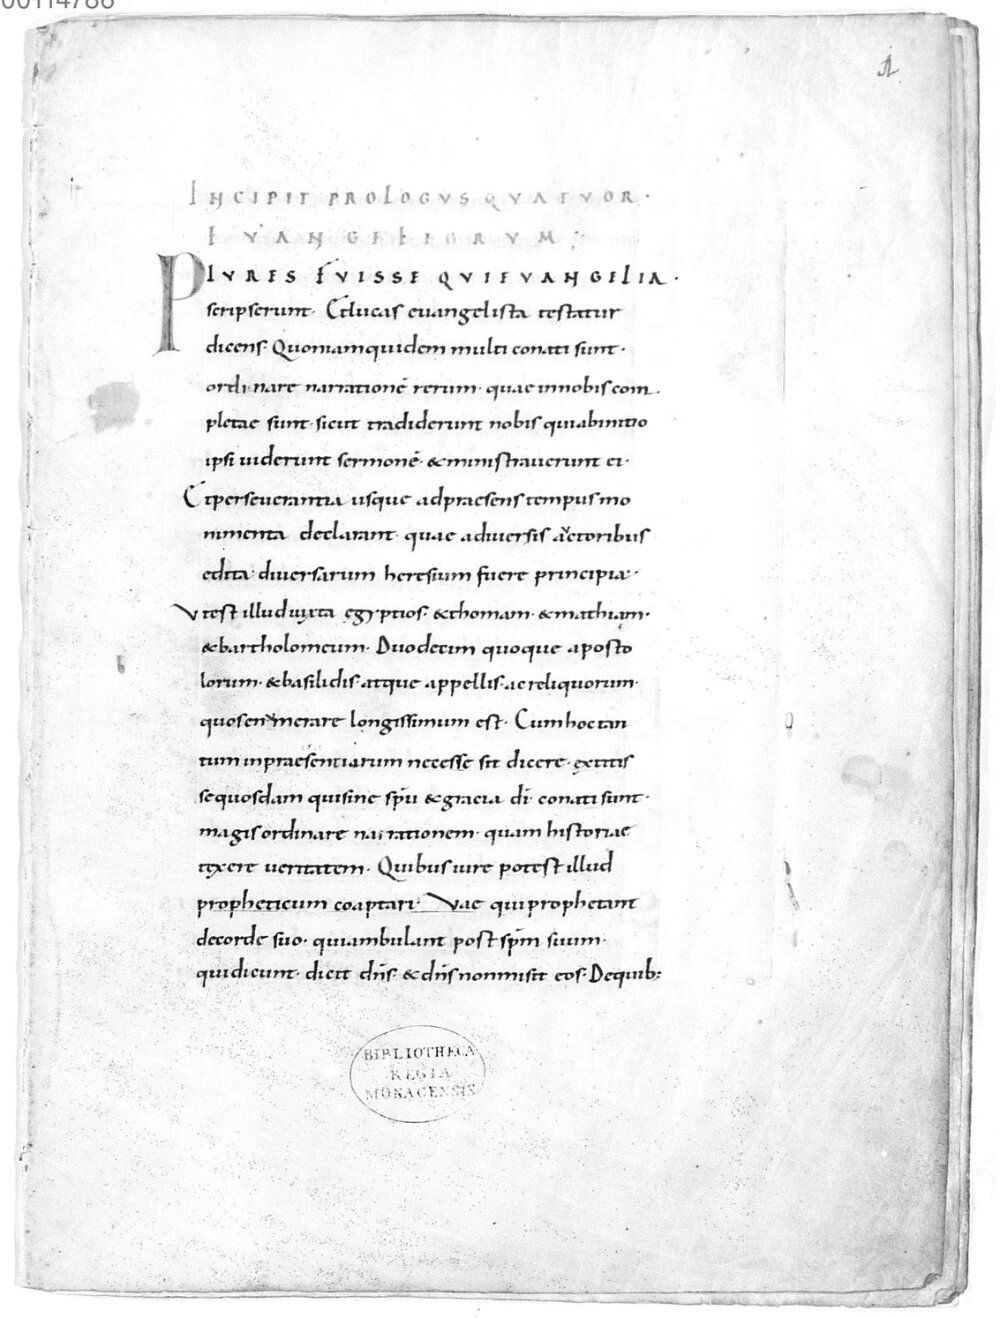 00114786
1
INCIPIT PROLOGVS QVATVOR·
EVANGELIORVM;
PLVRES FVISSE QVI EVANGELIA·
scripserunt· Et lucas euangelista testatur
dicens· Quoniam quidem multi conati sunt·
ordinare narrationē rerum· quae innobis com
pletae sunt· sicut tradiderunt nobis qui abinitio
ipsi uiderunt sermonē· & ministrauerunt ei·
Et perseuerantia usque adpraesens tempus mo
nimenta declarant· quae adiuersis auctoribus
edita· diuersarum heresium fuere principia·
Vt est illud iuxta egyptios· & thomam· & mathiam·
& bartholomeum· Duodecim quoque aposto
lorum· & basilidis atque appellis· ac reliquorum·
quos enumerare longissimum est· Cum hoc tan
tum inpraesentiarum necesse sit dicere· extitis
se quosdam qui sine sp̄u & gracia dī conati sunt·
magis ordinare narrationem· quam historiae
texere ueritatem· Quibus iure potest illud
propheticum coaptari· Vae qui prophetant
decorde suo· qui ambulant post sp̄m suum·
qui dicunt· dicit dn̄s· & dn̄s non misit eos· De quib:
BIBLIOTHECA
REGIA
MONACENSIS